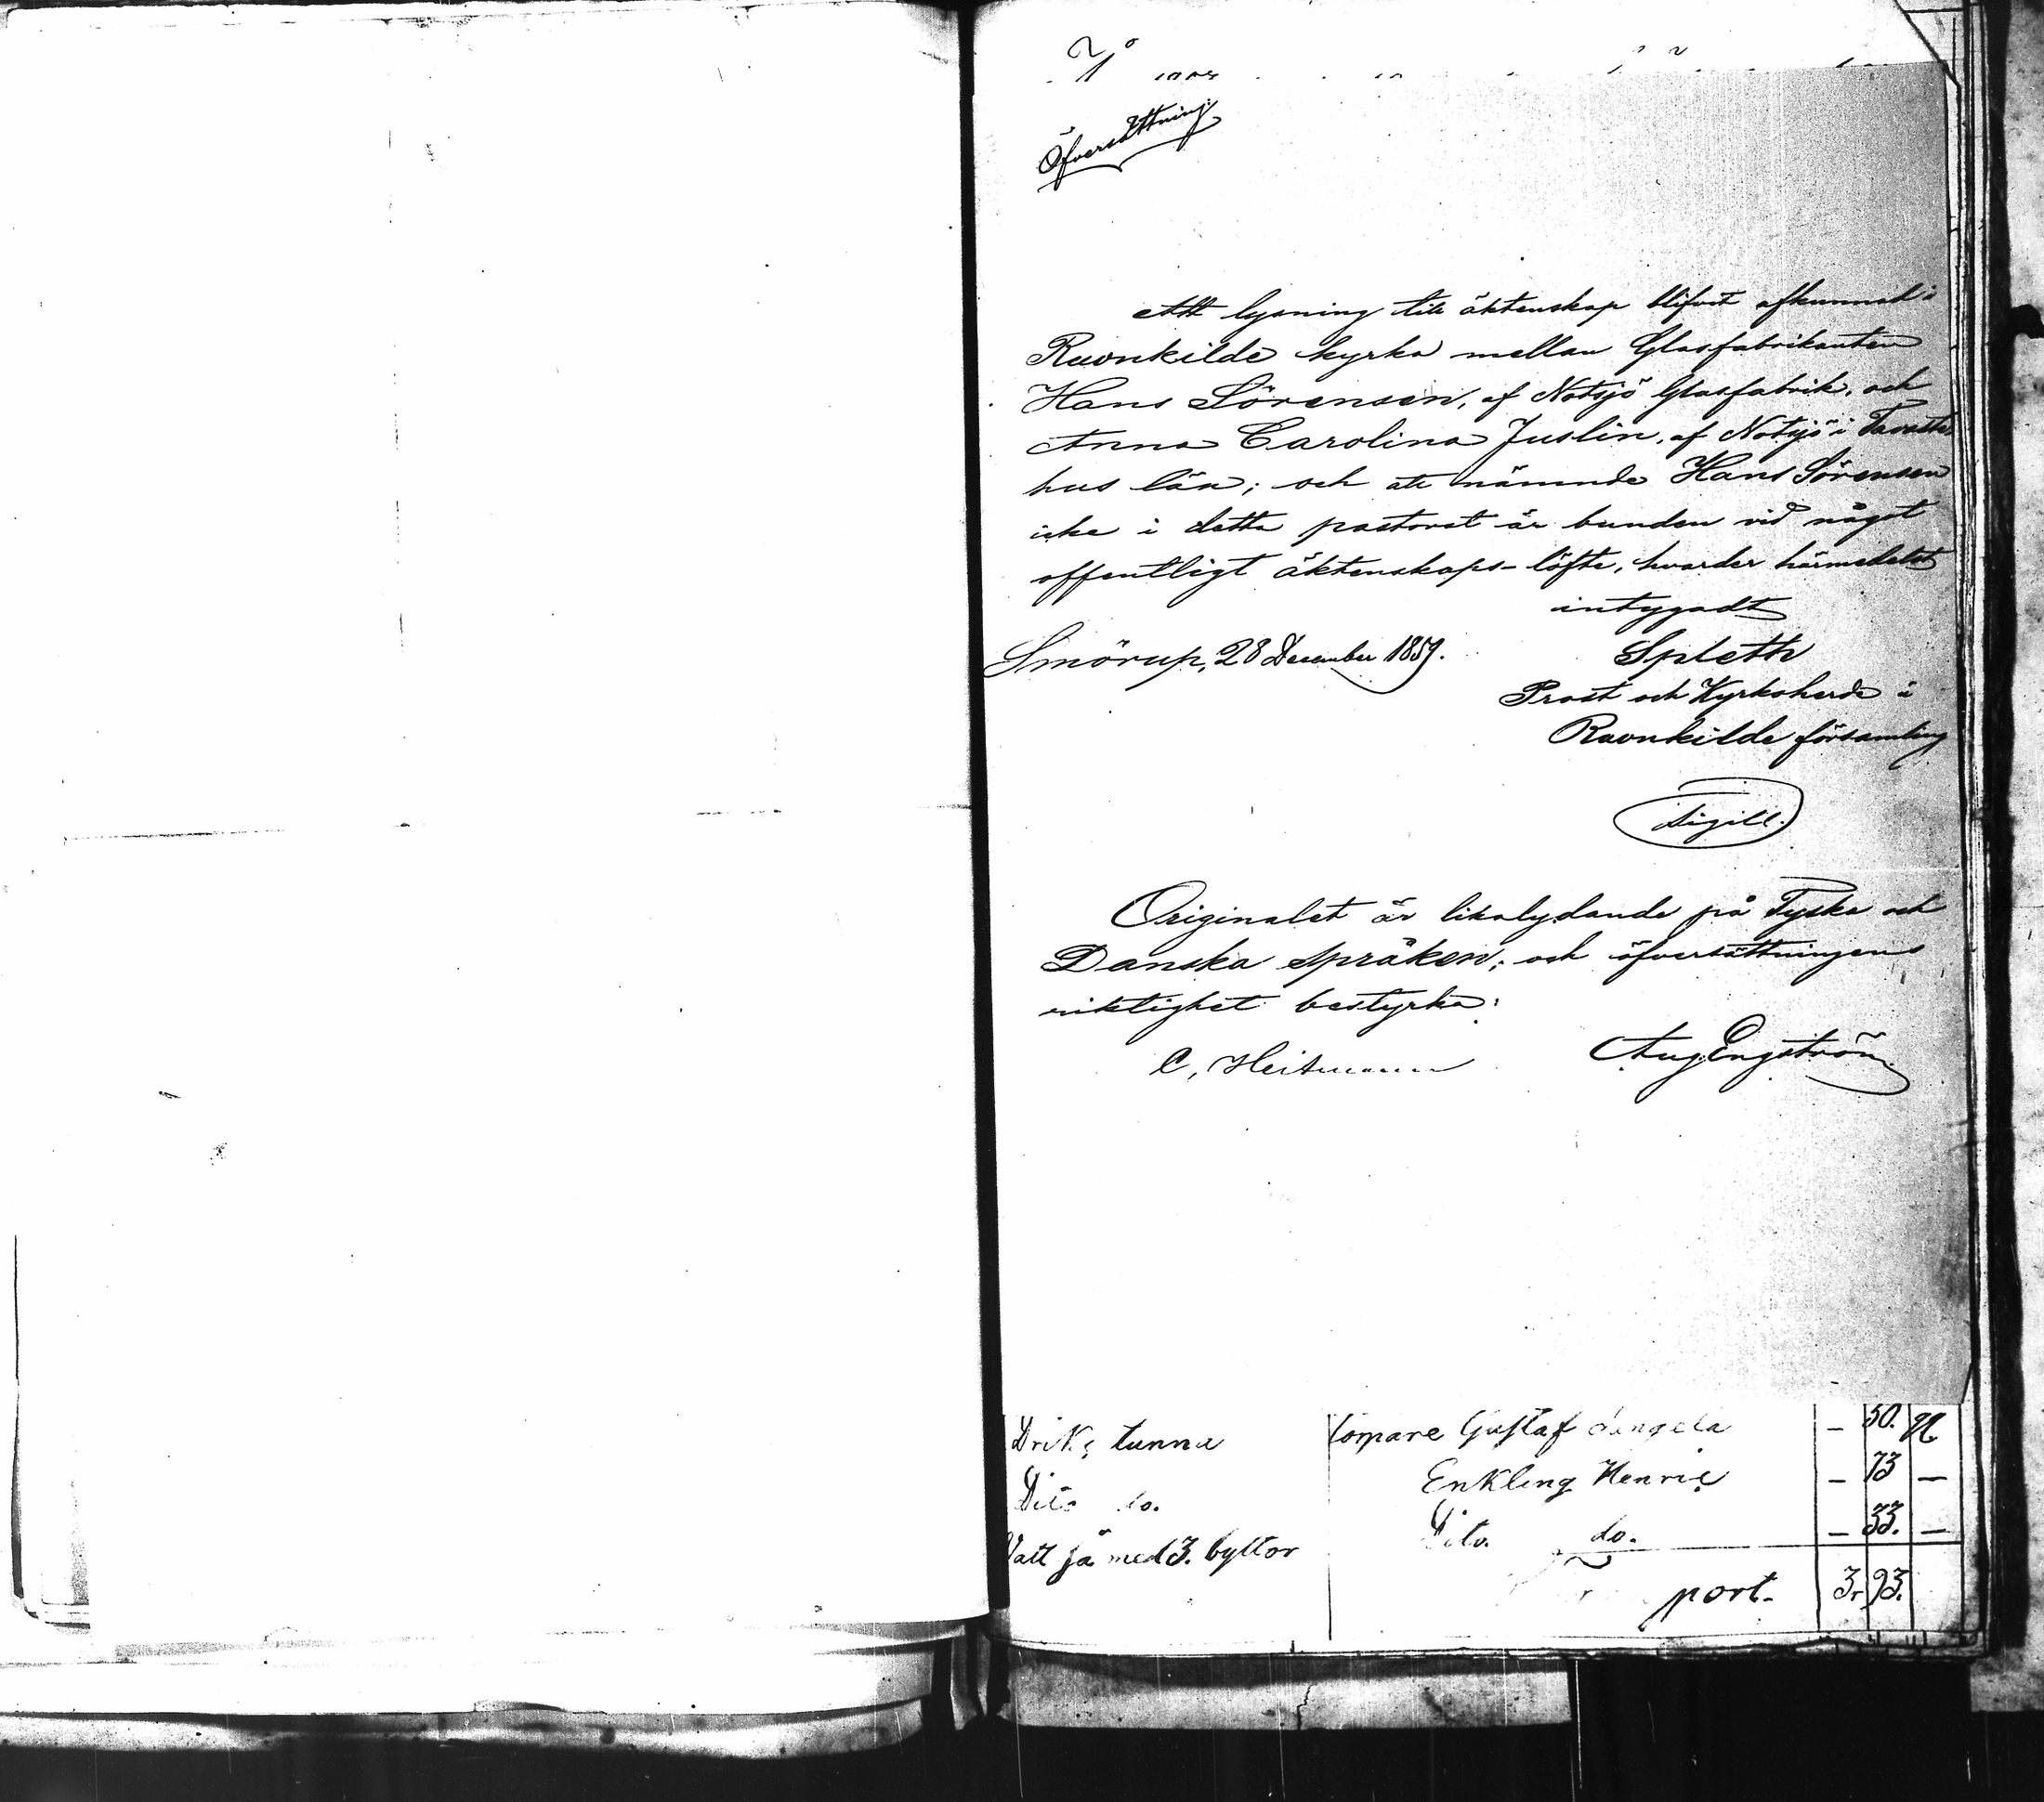 Öfversättning
Att lysning till äktenskap blifvit afkunnad i
Ravnkilde kyrka mellan Glasfabrikanten
Hans Sörensen, af Notsjö Glasfabrik, och
Anna Carolina Juslin, af Notsjö i Tavaste
hus län; och att nämnde Hans Sörensen
icke i detta pastorat är bunden vid något
offentligt äktenskaps-löfte, hvarder härmedelst
intygadt
Smörup, 28 December 1859.
Spleth
Prost och Kyrkoherde i
Ravnkilde församling
Sigill.
Originalet är likalydande på Tyska och
Danska språken; och öfversättningens
riktighet bestyrka:
C. Heitmann Aug. Engström
Driks tunna torpare Gustaf – 50. –
Dito do. Enkling Henric – 73 –
Vatt så med 3. byttor Dito. do. – 33. –
port. 3 r 93.